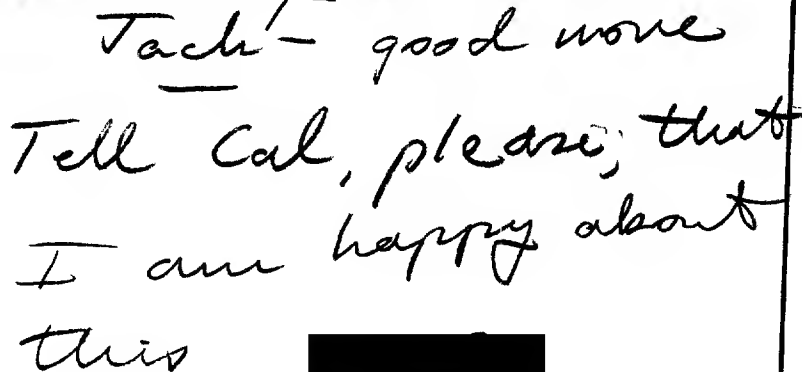 Jack - good move
Tell Cal, please, that
I am happy about
this